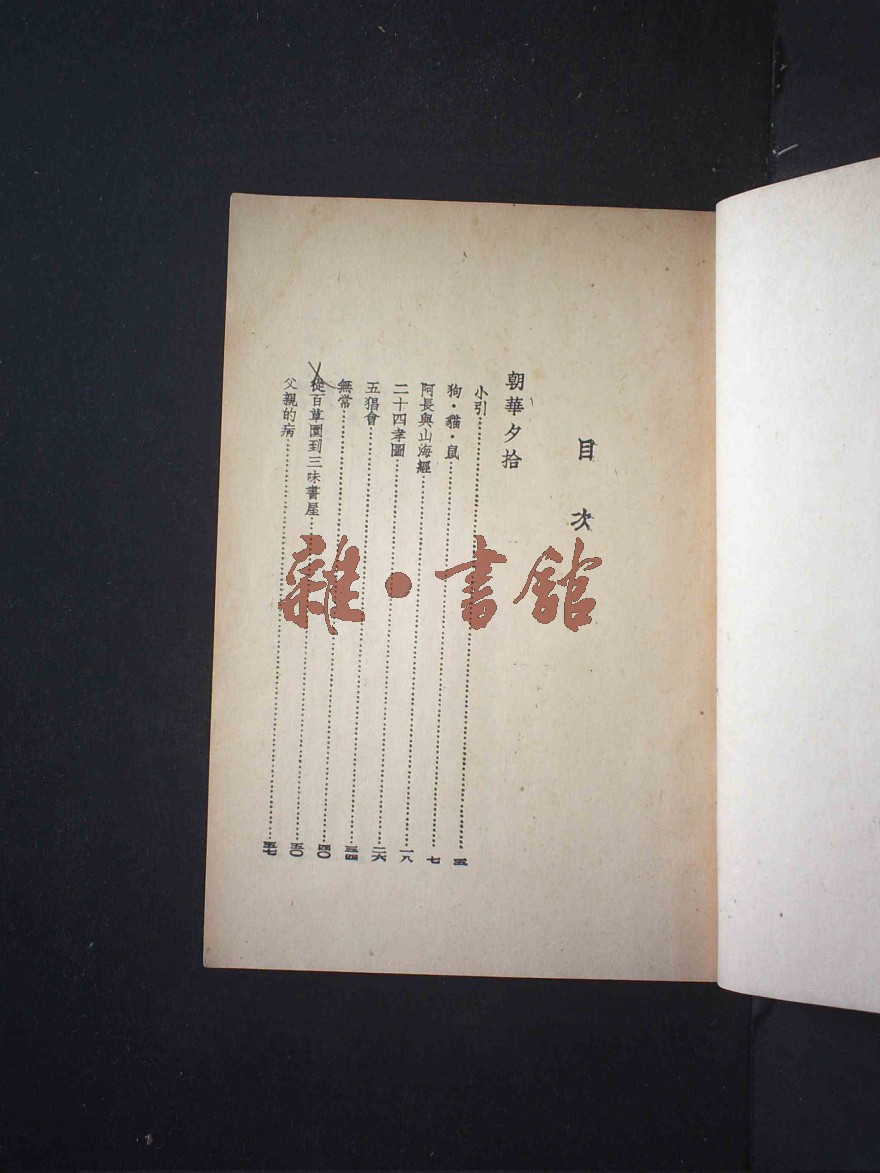 目次
朝華夕拾
小引……五
狗·貓·鼠……七
阿長與山海經……一八
二十四孝圖……二六
五猖會……三四
無常……四〇
從百草園到三味書屋……五〇
父親的病……五七
雜·書館